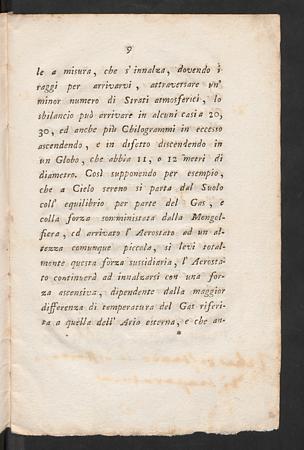 9
le a misura, che s'innalza, dovendo i
raggi per arrivarvi, attraversare un'
minor numero di Strati atmosferici, lo
sbilancio può arrivare in alcuni casi a 20,
30, ed anche più Chilogrammi in eccesso
ascendendo, e in difetto discendendo in
un Globo, che abbia 11, o 12 metri di
diametro. Così supponendo per esempio,
che a Cielo sereno si parta dal Suolo
coll' equilibrio per parte del Gas, e
colla forza somministrata dalla Mengel-
fiera, ed arrivato l' Aerostato ad un al-
tezza comunque piccola, si levi total-
mente questa forza sussidiaria, l' Acrosta-
to continuerà ad innalzarsi con una for-
za ascensiva, dipendente dalla maggior
differenza di temperatura del Gas riferi-
ta a quella dell' Aria esterna, e che an-